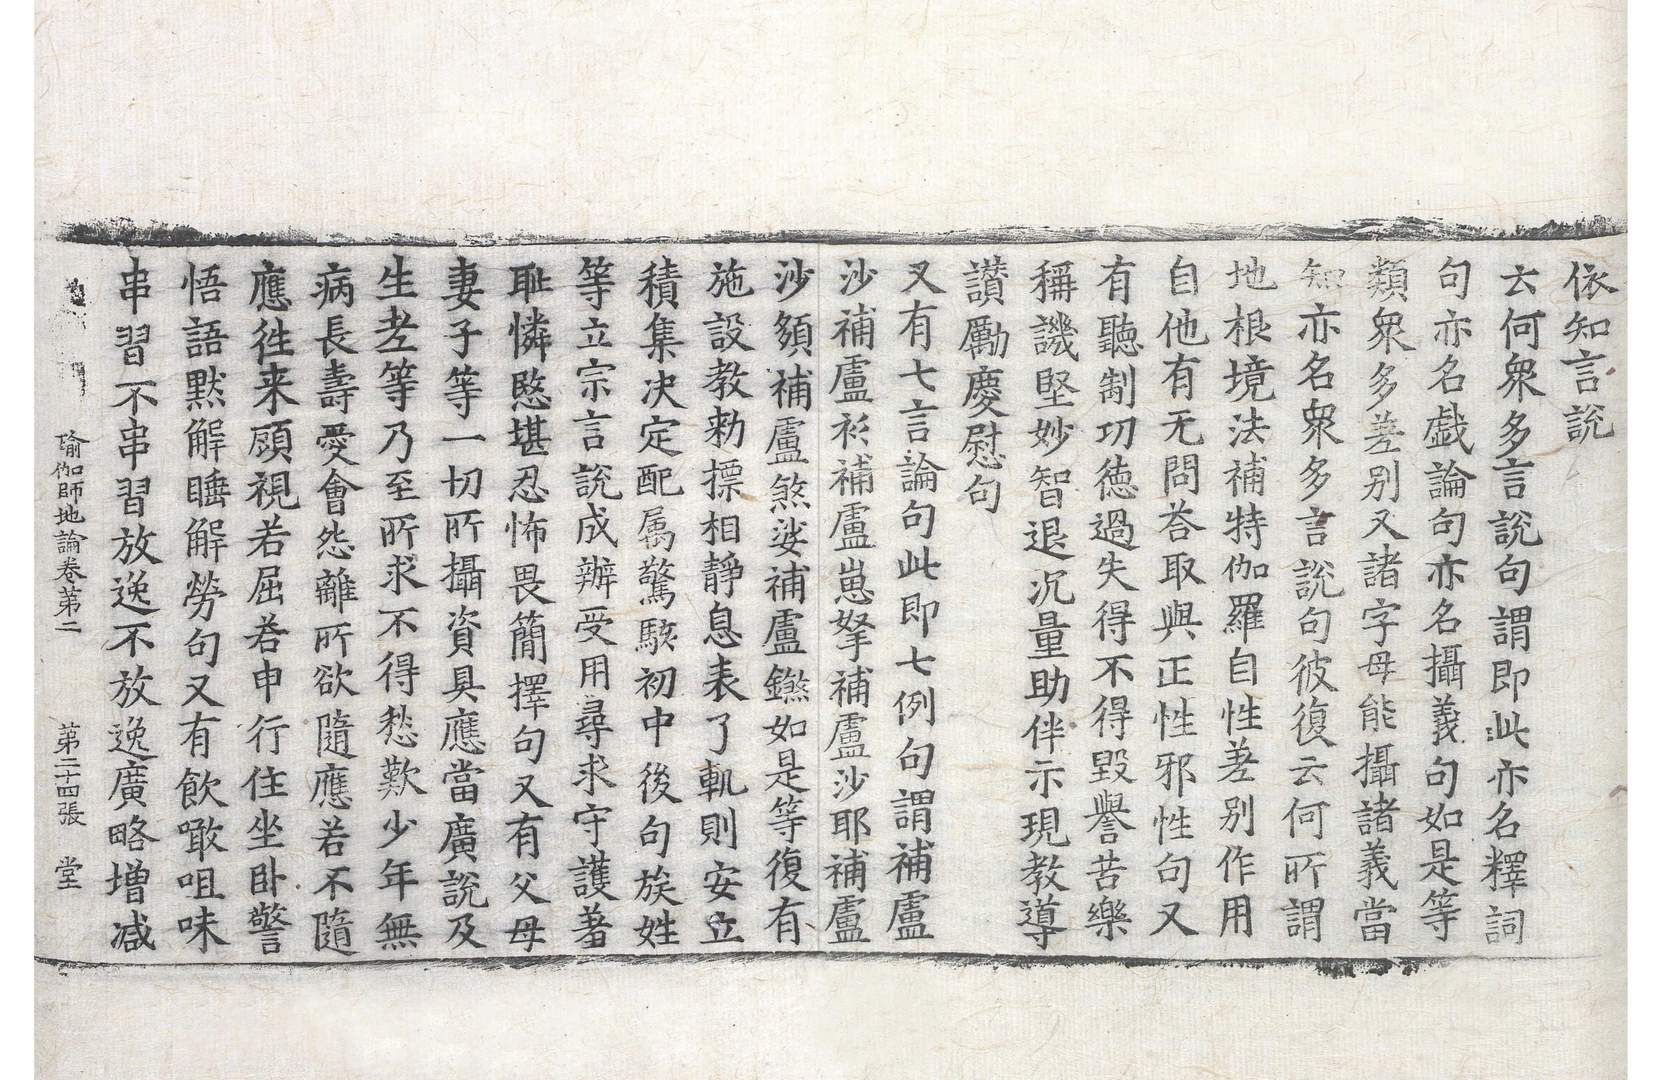 依知言說
云何衆多言說句謂即此亦名釋詞
句亦名戲論句亦名攝義句如是等
類衆多差別又諸字母能攝諸義當
知亦名衆多言說句彼復云何所謂
地根境法補特伽羅自性差別作用
自他有无問荅取與正性邪性句又
有聽制功德過失得不得毀譽苦樂
稱譏堅妙智退沉量助伴示現教導
讃勵慶慰句
又有七言論句此即七例句謂補盧
沙補盧衫補盧崽拏補盧沙耶補盧
沙頞補盧煞娑補盧鑠如是等復有
施設教勑摽相靜息表了軌則安立
積集決定配属驚駭初中後句族姓
等立宗言說成辦受用尋求守護羞
耻憐愍堪忍怖畏簡擇句又有父母
妻子等一切所攝資具應當廣說及
生老等乃至所求不得愁歎少年無
病長壽愛會怨離所欲隨應若不隨
應徃来顧視若屈若申行住坐卧警
悟語黙解睡解勞句又有飲噉咀味
串習不串習放逸不放逸廣略增减
瑜伽師地論卷第二 第二十四張 堂